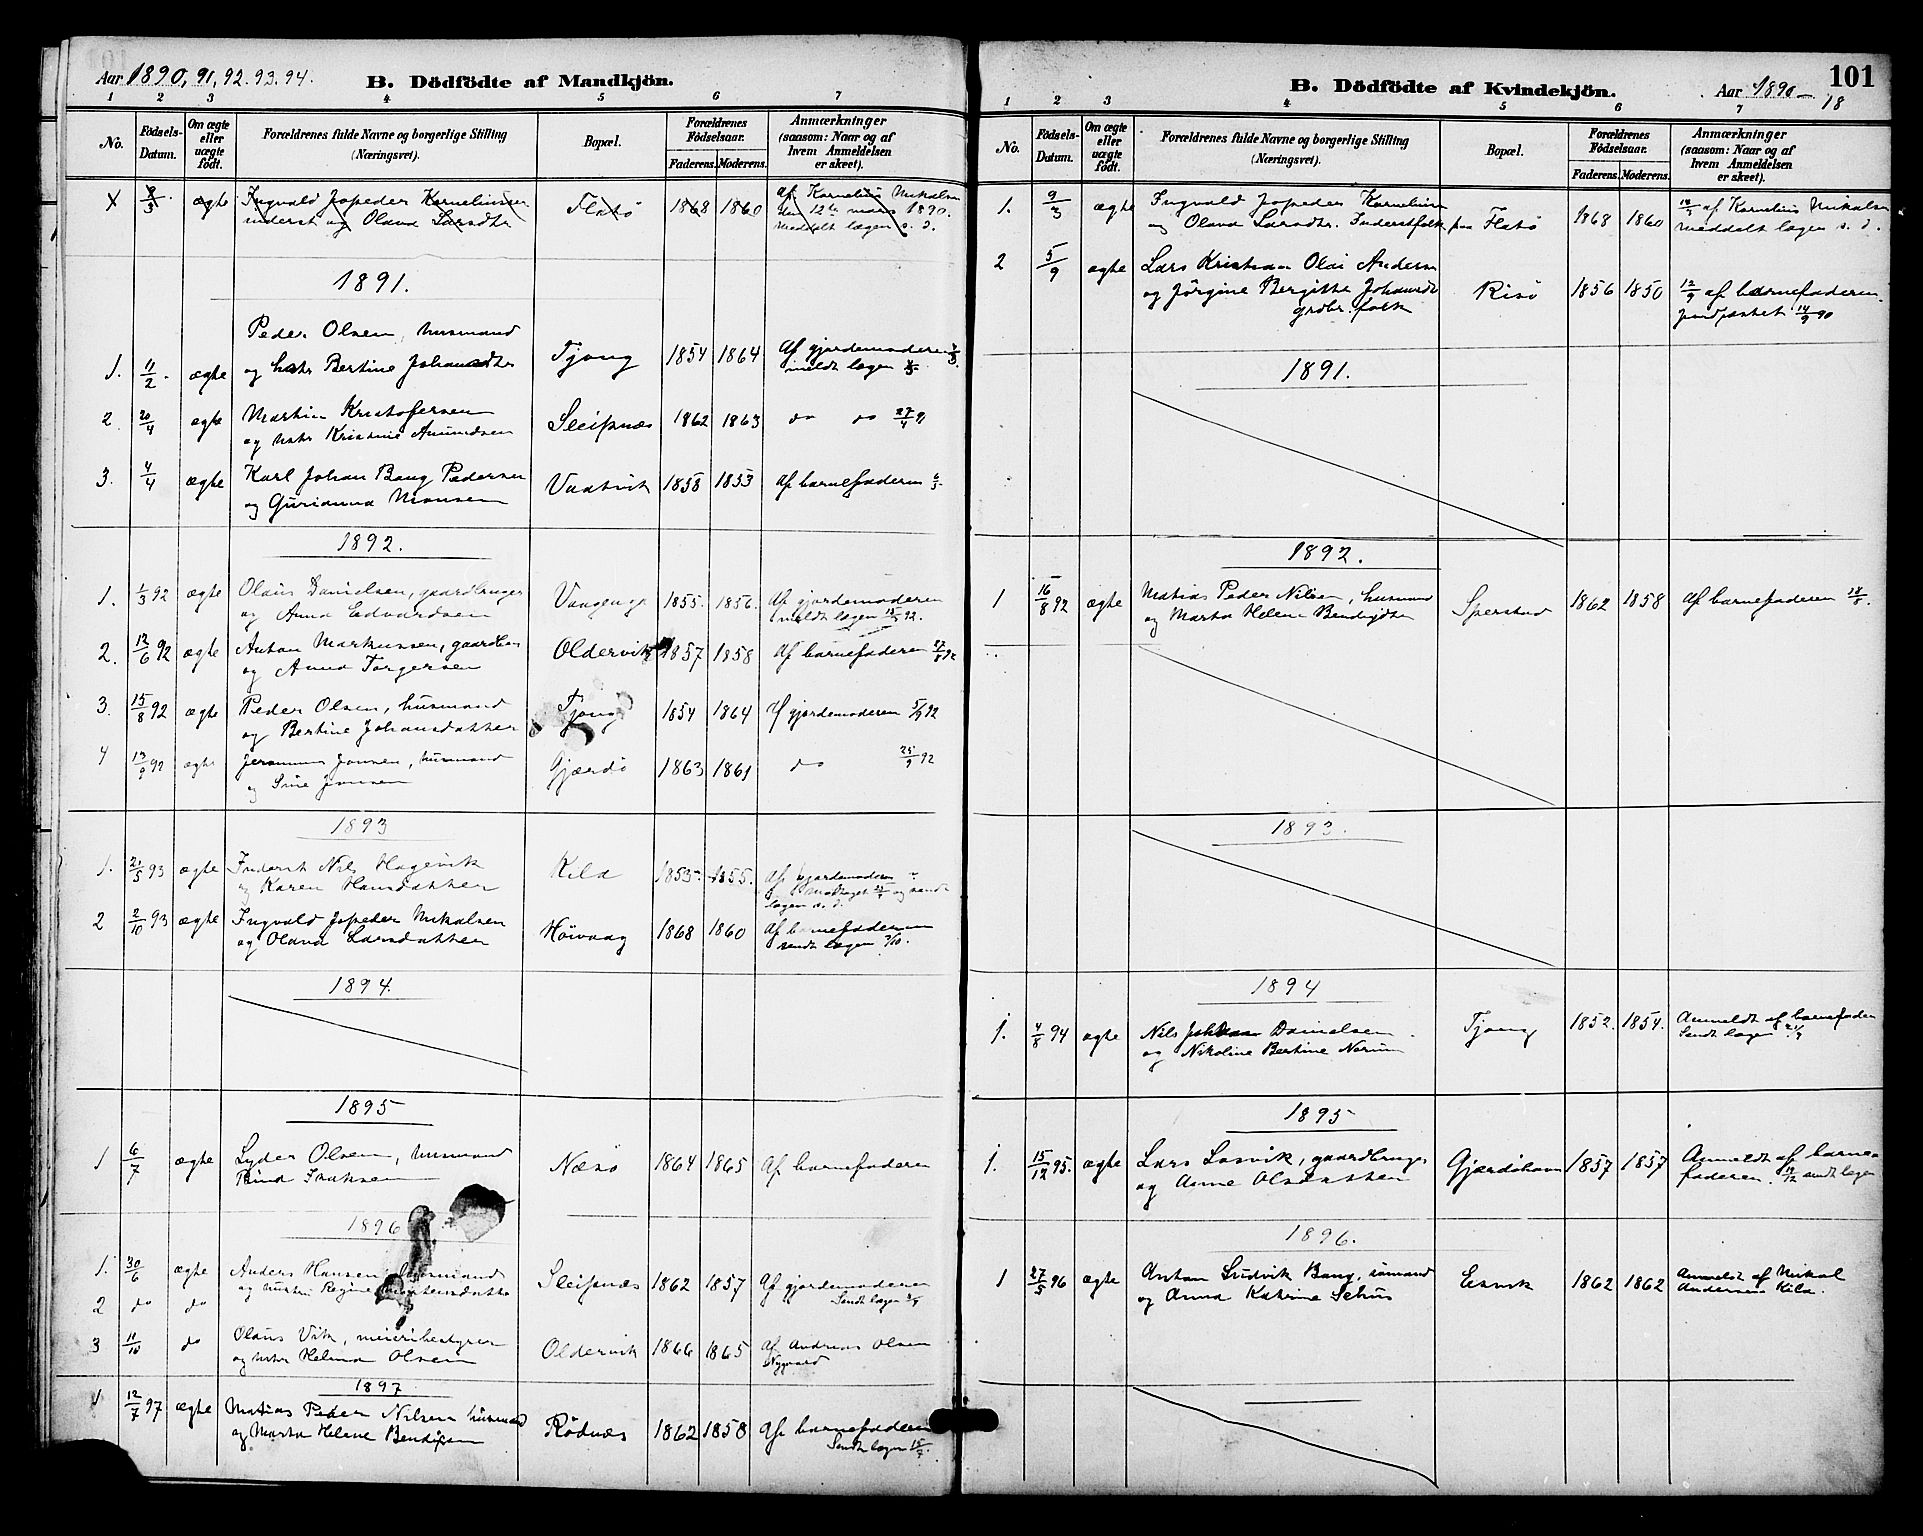 Aar 1890, 91, 92. 93. 94. B. Dödfödte af Mandkjön.
1 2 3 4 5 6 7
No. Födsels-Datum. Om ægte eller uægte födt. Forældrenes fulde Navne og borgerlige Stilling (Næringsvei). Bopæl. Forældrenes Födselsaar. Faderens. Moderens. Anmærkninger (saasom: Naar og af hvem Anmeldelsen er skeet).
X 9/3 ægte Ingvald Jopeder Korneliussen Flatö 1868 1860 Af Kornelius Mikalsen
inderst og Olava Larsdtr den 12te mars 1890.
meddelt lægen s. d.
1891.
Peder Olsen, husmand
1. 11/2 ægte og hstr Bertine Johansdtr Tjong 1854 1864 Af gjordemoderen
meldt lægen
2. 20/4 ægte Martin Kristofersen Sleipnæs 1862 1863 do do 27/4 91
og hstr Kristine Amundsen
3. 4/4 ægte Karl Johan Bang Pedersen Vaatvik 1858 1853 Af barnefaderen
og Gurianna Monsen
1892.
1. 1/3 92 ægte Olaus Danielsen, gaardbruger Vaagenge 1855. 1856. Af gjordemoderen
og Anna Edvardsen meldt lægen 15/3 92.
2. 13/6 92 ægte Anton Markussen, gaardbr Oldervik 1857 1858 Af barnefaderen
og Anna Torgersen
3. 15/8 92 ægte Peder Olsen, husmand Tjong 1854 1864 Af gjordemoderen 5/9 92
og Bertine Johansdatter
4 13/9 92 ægte Jensen, husmand Gjærdö 1863 1861 do 25/9 92
og Sine Jonsen
1893
1. 21/5 93 ægte Inderst Nils Hagevik Kila 1853. 1855. Af gjordemoderen
og Karen Hansdatter modtaget og sendt
lægen s. d.
2 2/10 93 ægte Ingvald Jopeder Mikalsen Höivaag 1868 1860 Af barnefaderen
og Olava Larsdatter sendt lægen /10.
1894.
1895
1 6/7 ægte Lyder Olsen, husmand Næsö 1864 1865 Af barnefaderen
Rina Isaksen
1896
1. 30/6 ægte Anders Hansen, husmand Sleipnæs 1862 1857 Af gjordemoderen
2 do do og hustru Regine Sendt lægen
3 11/10 do Olaus Vik, meieribestyrer Oldervik 1866 1865 Af Andreas Olsen
og hstr Helma Olsen Nygaard
1897
1 12/7 97 ægte Matias Peder Nilsen husmand Rödnæs 1862 1858 Af barnefaderen
og Marta Helene Bendiksen Sendt lægen 15/7.
B. Dödfödte af Kvindekjön. Aar 1890 — 18 101
1 2 3 4 5 6 7
No. Födsels-Datum. Om ægte eller uægte födt. Forældrenes fulde Navne og borgerlige Stilling (Næringsvei). Bopæl. Forældrenes Födselsaar. Faderens. Moderens. Anmærkninger (saasom: Naar og af hvem Anmeldelsen er skeet).
1. 9/3 ægte Ingvald Jopeder Kornelius 1868 1860 12/3 af Kornelius Mikalsen
og Olava Larsdtr. Inderstfolk paa Flatö meddelt lægen s. d.
2 5/9 ægte Lars Kristian Olai Andersen Risö 1856 1850 12/9 af barnefaderen.
og Jörgine Bergitte Johansdtr jordfæstet 14/9 90
grdbr. folk
1891.
1892.
1 16/8 92 ægte Matias Peder Nilsen, husmand Sperstad 1862 1858 Af barnefaderen 18/8.
og Marta Helene
1893.
1894
1. 4/8 94 ægte Nils Johan Danielsen Tjong 1852. 1854. Anmeldt af barnefader
og Nikoline Bertine Sendt lægen
1895
1. 15/12 95. ægte Lars Lasvik, gaardbruger Gjærdöhavn 1857 1857 Anmeldt af barne-
og Anne Olsdatter faderen. sendt lægen
1896.
1 27/5 96 ægte Anton Ludvik Bang, sömand Esvik 1862 1862 Anmeldt af Mikal
og Anna Katrine Andersen Kila.